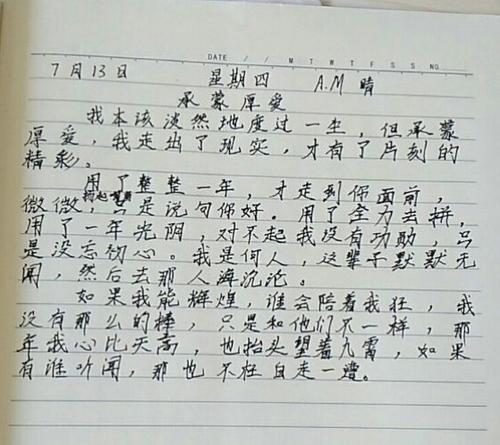 DATE / / M T W T F S S NO.
7月13日 星期四 A.M 晴
承蒙厚爱
我本该淡然地度过一生，但承蒙
厚爱，我走出了现实，才有了片刻的
精彩。
用了整整一年，才走到你面前，
微微，只是说句你好。用了全力去拼，
用了一年光阴，对不起我没有功勋，只
是没忘初心。我是何人，这辈子默默无
闻，然后去那人海沉沦。
如果我能辉煌，谁会陪着我狂，我
没有那么的棒，只是和他们不一样，那
年我心比天高，也抬头望着九霄，如果
有谁听闻，那也不枉白走一遭。